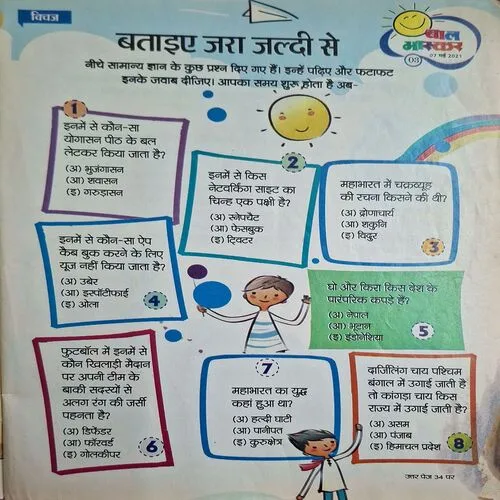 क्विज
बताइए जरा जल्दी से
बाल
भास्कर
07 मई 2021
03
नीचे सामान्य ज्ञान के कुछ प्रश्न दिए गए हैं। इन्हें पढ़िए और फटाफट
इनके जवाब दीजिए। आपका समय शुरू होता है अब-
1
इनमें से कौन-सा
योगासन पीठ के बल
लेटकर किया जाता है?
(अ) भुजंगासन
(आ) शवासन
(इ) गरुड़ासन
2
इनमें से किस
नेटवर्किंग साइट का
चिन्ह एक पक्षी है?
(अ) स्नेपचैट
(आ) फेसबुक
(इ) ट्विटर
महाभारत में चक्रव्यूह
की रचना किसने की थी?
(अ) द्रोणाचार्य
(आ) शकुनि
(इ) विदुर
3
इनमें से कौन-सा ऐप
कैब बुक करने के लिए
यूज नहीं किया जाता है?
(अ) उबेर
(आ) इस्पॉटीफाई
(इ) ओला
4
घो और किरा किस देश के
पारंपरिक कपड़े हैं?
(अ) नेपाल
(आ) भूटान
(इ) इंडोनेशिया
5
फुटबॉल में इनमें से
कौन खिलाड़ी मैदान
पर अपनी टीम के
बाकी सदस्यों से
अलग रंग की जर्सी
पहनता है?
(अ) डिफेंडर
(आ) फॉरवर्ड
(इ) गोलकीपर
6
7
महाभारत का युद्ध
कहां हुआ था?
(अ) हल्दी घाटी
(आ) पानीपत
(इ) कुरुक्षेत्र
दार्जिलिंग चाय पश्चिम
बंगाल में उगाई जाती है
तो कांगड़ा चाय किस
राज्य में उगाई जाती है?
(अ) असम
(आ) पंजाब
(इ) हिमाचल प्रदेश
8
उत्तर पेज 34 पर